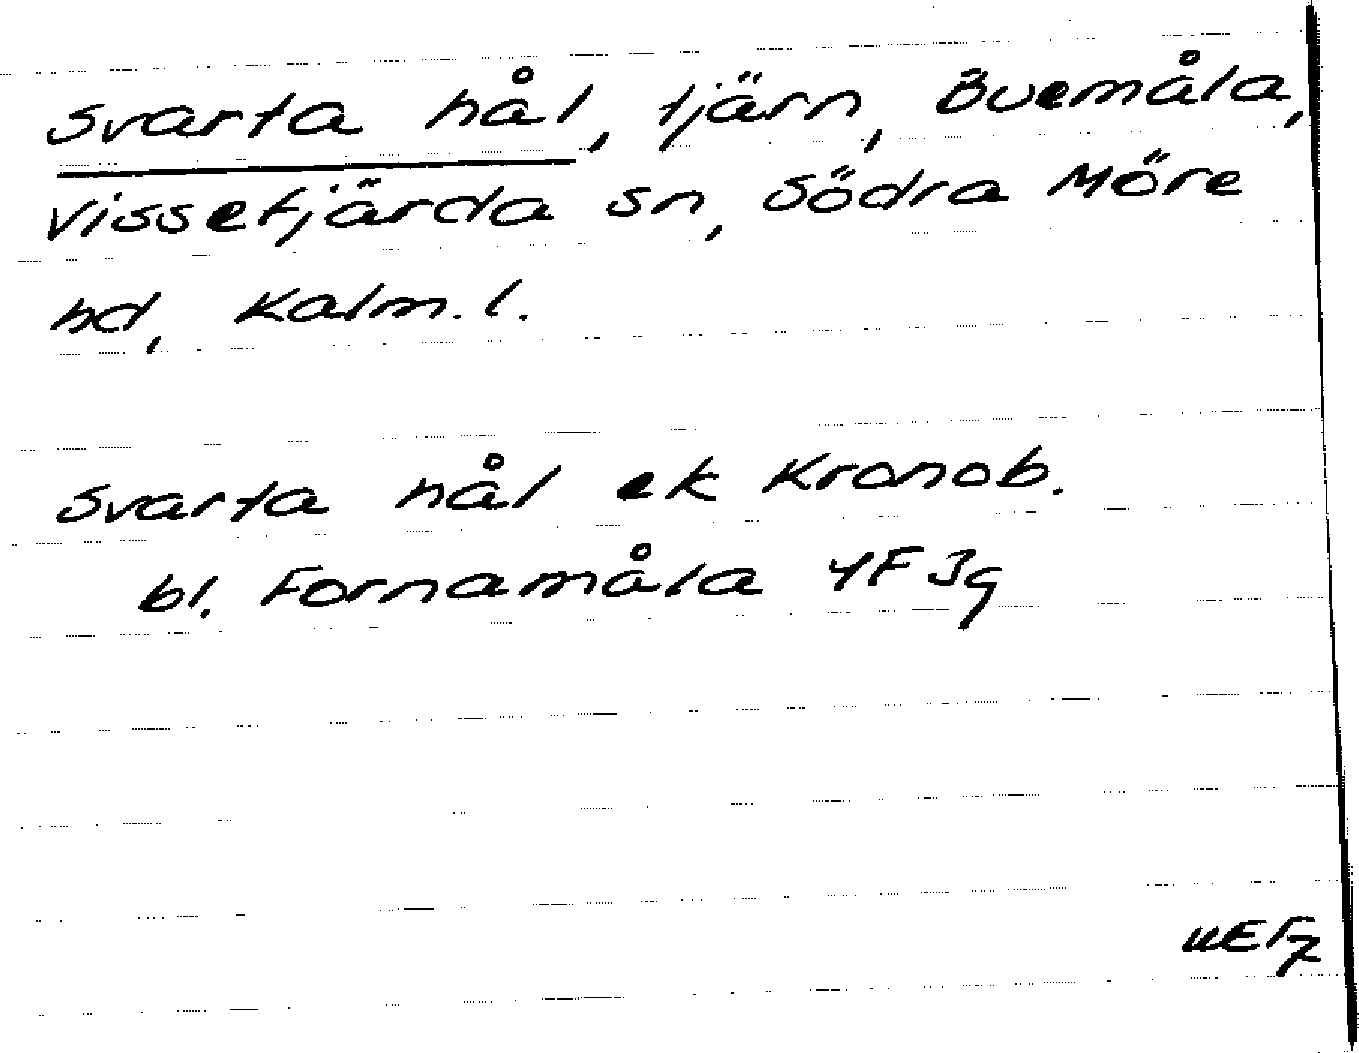 Svarta hål, tjärn, Buemåla,
Vissefjärda sn, Södra Möre
hd, Kalm. l.
Svarta hål ek Kronob.
bl. Fornamåla 4F 3g